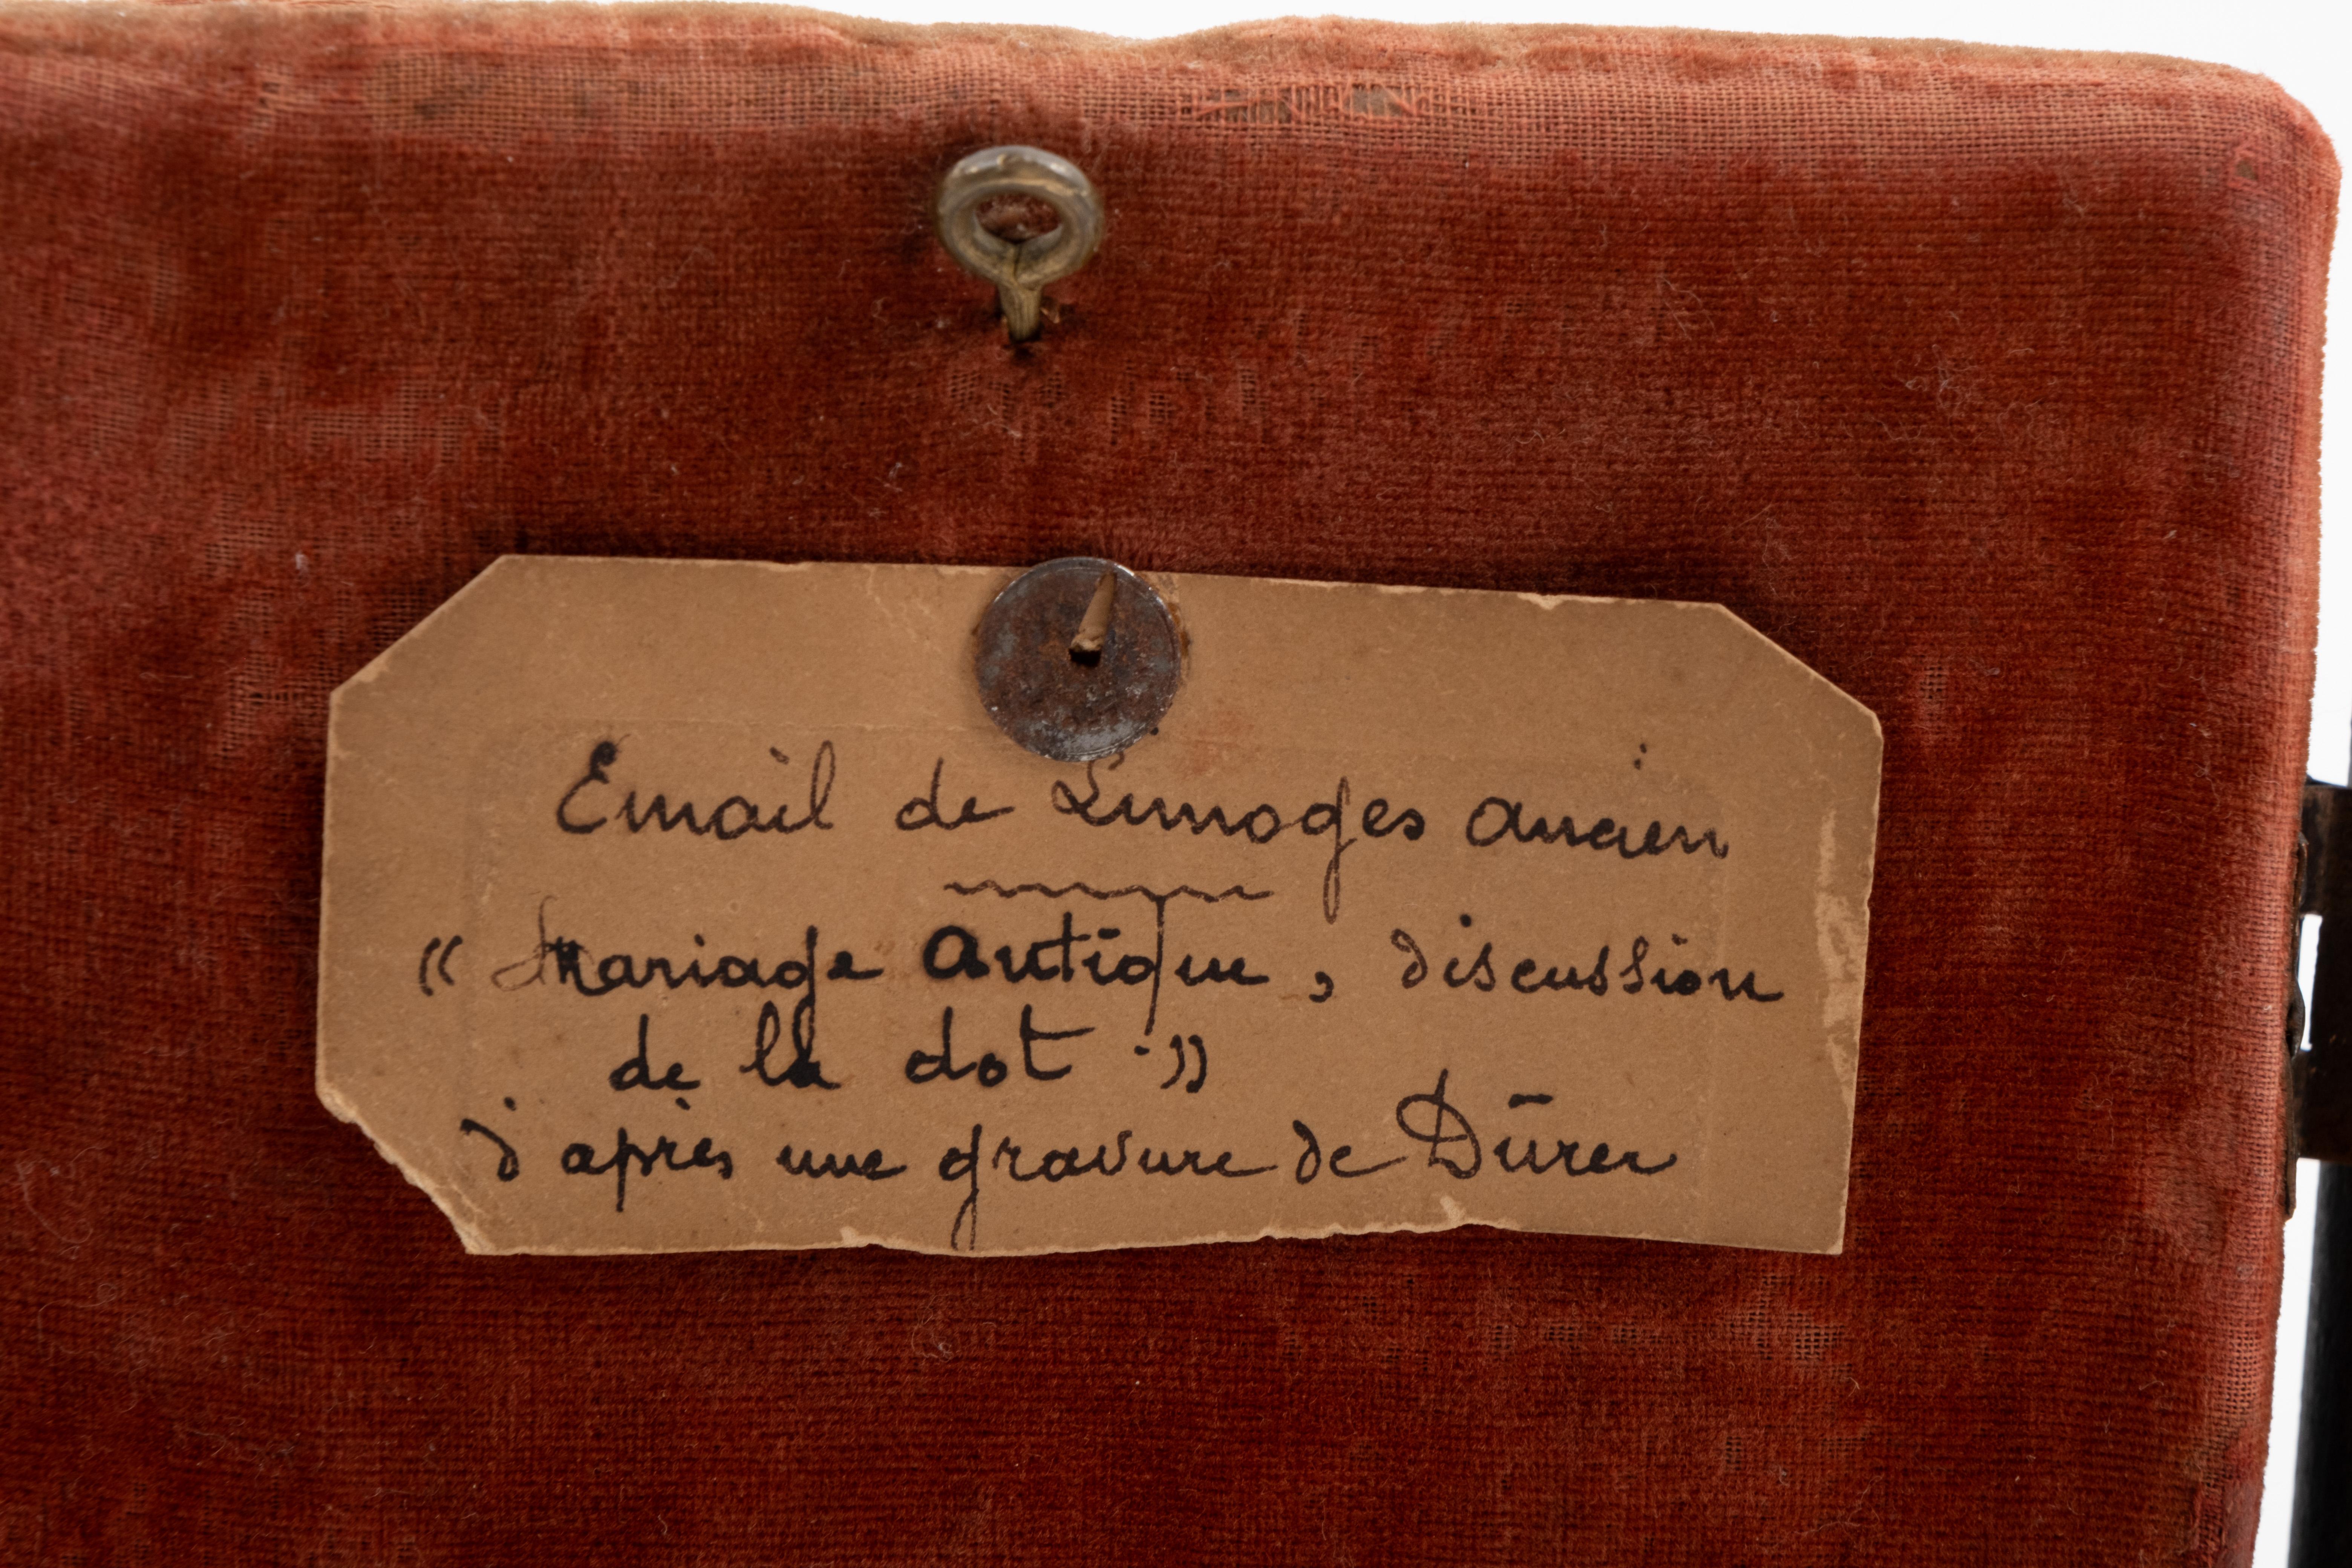 Email de Limoges ancien
« Mariage antique, discussion
de la dot. »
d'après une gravure de Dürer